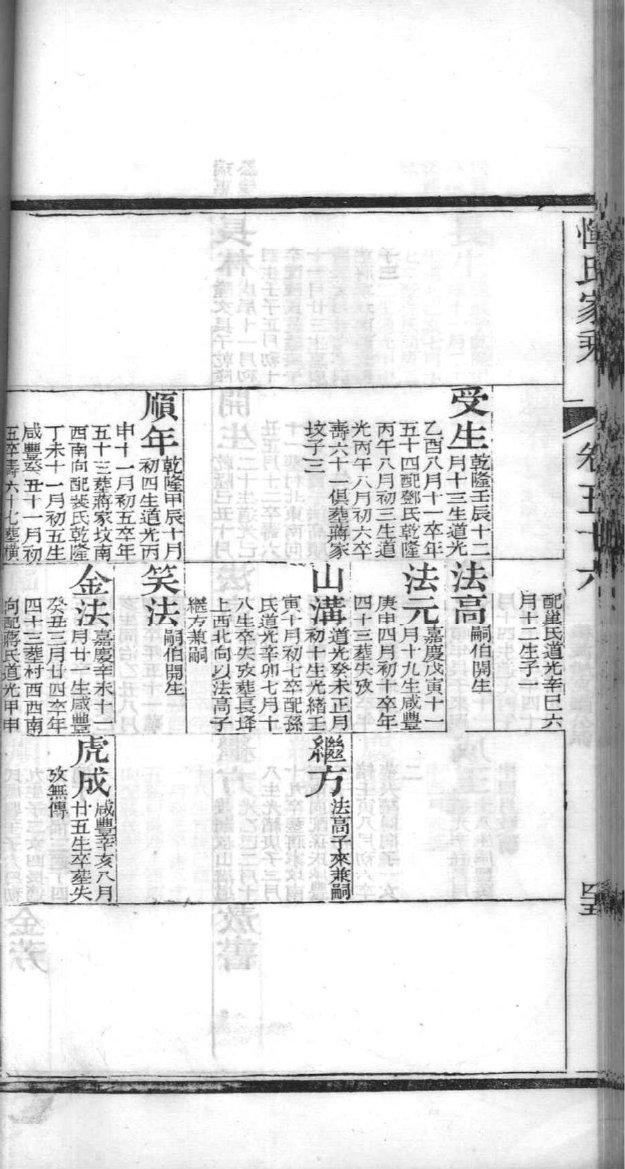 惲氏家乘
卷五十六
受生
乾隆壬辰十二
月十三生道光
乙酉八月十一卒年
五十四配鄧氏乾隆
丙午八月初三生道
光丙午八月初六卒
壽六十一俱葬蔣家
坟子三
順年
乾隆甲辰十月
初四生道光丙
申十一月初五卒年
五十三葬蔣家坟南
西南向配裴氏乾隆
丁未十一月初五生
咸豐癸丑十一月初
五卒壽六十七葬橫
配巢氏道光辛巳六
月十二生子一
法高
嗣伯開生
法元
嘉慶戊寅十一
月十九生咸豐
庚申四月初十卒年
四十三葬失攷
山溝
道光癸未正月
初十生光緒壬
寅十月初七卒配孫
氏道光辛卯七月十
八生卒失攷葬長垾
上西北向以法高子
繼方兼嗣
笑法
嗣伯開生
金法
嘉慶辛未十一
月廿一生咸豐
癸丑三月廿四卒年
四十三葬村西西南
向配蔣氏道光甲申
繼方
法高子來兼嗣
虎成
咸豐辛亥八月
廿五生卒葬失
攷無傳